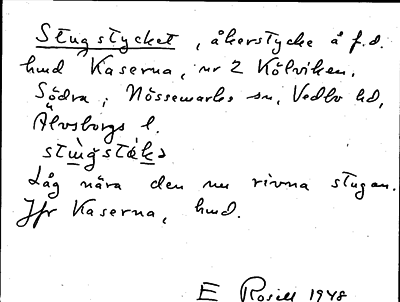 Stugstycket, åkerstycke å f.d.
hmd Kaserna, nr 2 Kölviken,
Södra, Nössemarks sn, Vedbo hd,
Älvsborgs l.
Låg nära den nu rivna stugan.
Jfr Kaserna, hmd.
E Rosell 1948